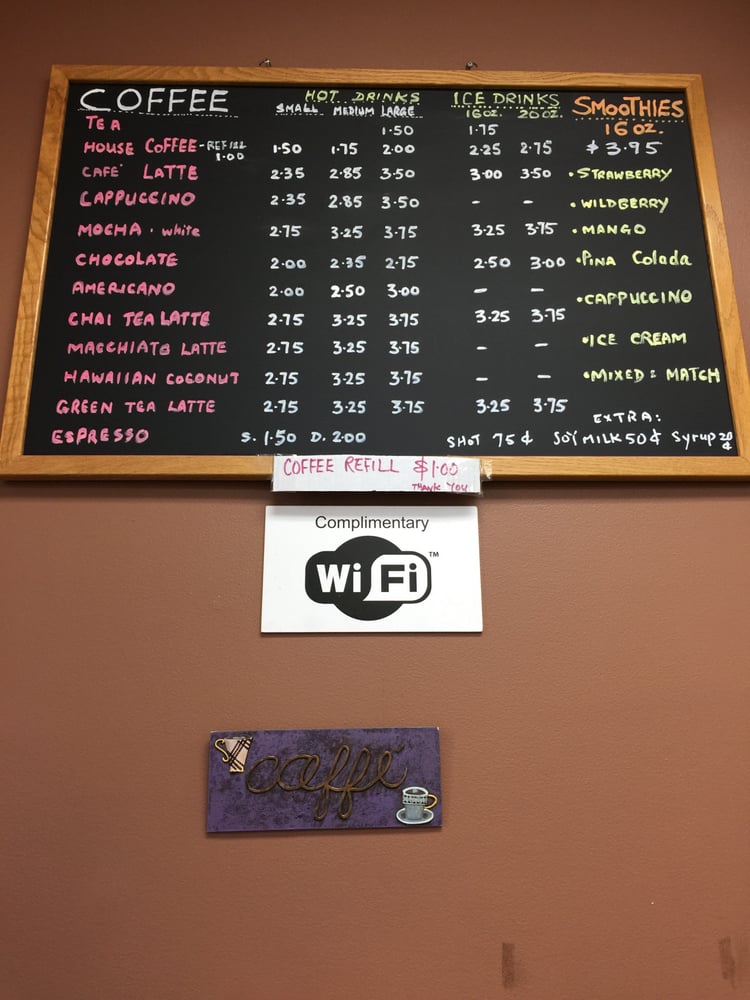 COFFEE HOT DRINKS ICE DRINKS SMOOTHIES
SMALL MEDIUM LARGE 16 oz. 20 oz. 16 oz.
TEA 1.50 1.75
HOUSE COFFEE - REFILL 1.00 1.50 1.75 2.00 2.25 2.75 $3.95
CAFE' LATTE 2.35 2.85 3.50 3.00 3.50 • STRAWBERRY
CAPPUCCINO 2.35 2.85 3.50 - - • WILDBERRY
MOCHA . white 2.75 3.25 3.75 3.25 3.75 • MANGO
CHOCOLATE 2.00 2.35 2.75 2.50 3.00 • PINA Colada
AMERICANO 2.00 2.50 3.00 - - • CAPPUCCINO
CHAI TEA LATTE 2.75 3.25 3.75 3.25 3.75
MACCHIATO LATTE 2.75 3.25 3.75 - - • ICE CREAM
HAWAIIAN COCONUT 2.75 3.25 3.75 - - • MIXED : MATCH
GREEN TEA LATTE 2.75 3.25 3.75 3.25 3.75 EXTRA:
ESPRESSO S. 1.50 D. 2.00 SHOT 75¢ SOY MILK 50¢ Syrup 20¢
COFFEE REFILL $1.00
THANK YOU
Complimentary
Wi Fi ™
caffé